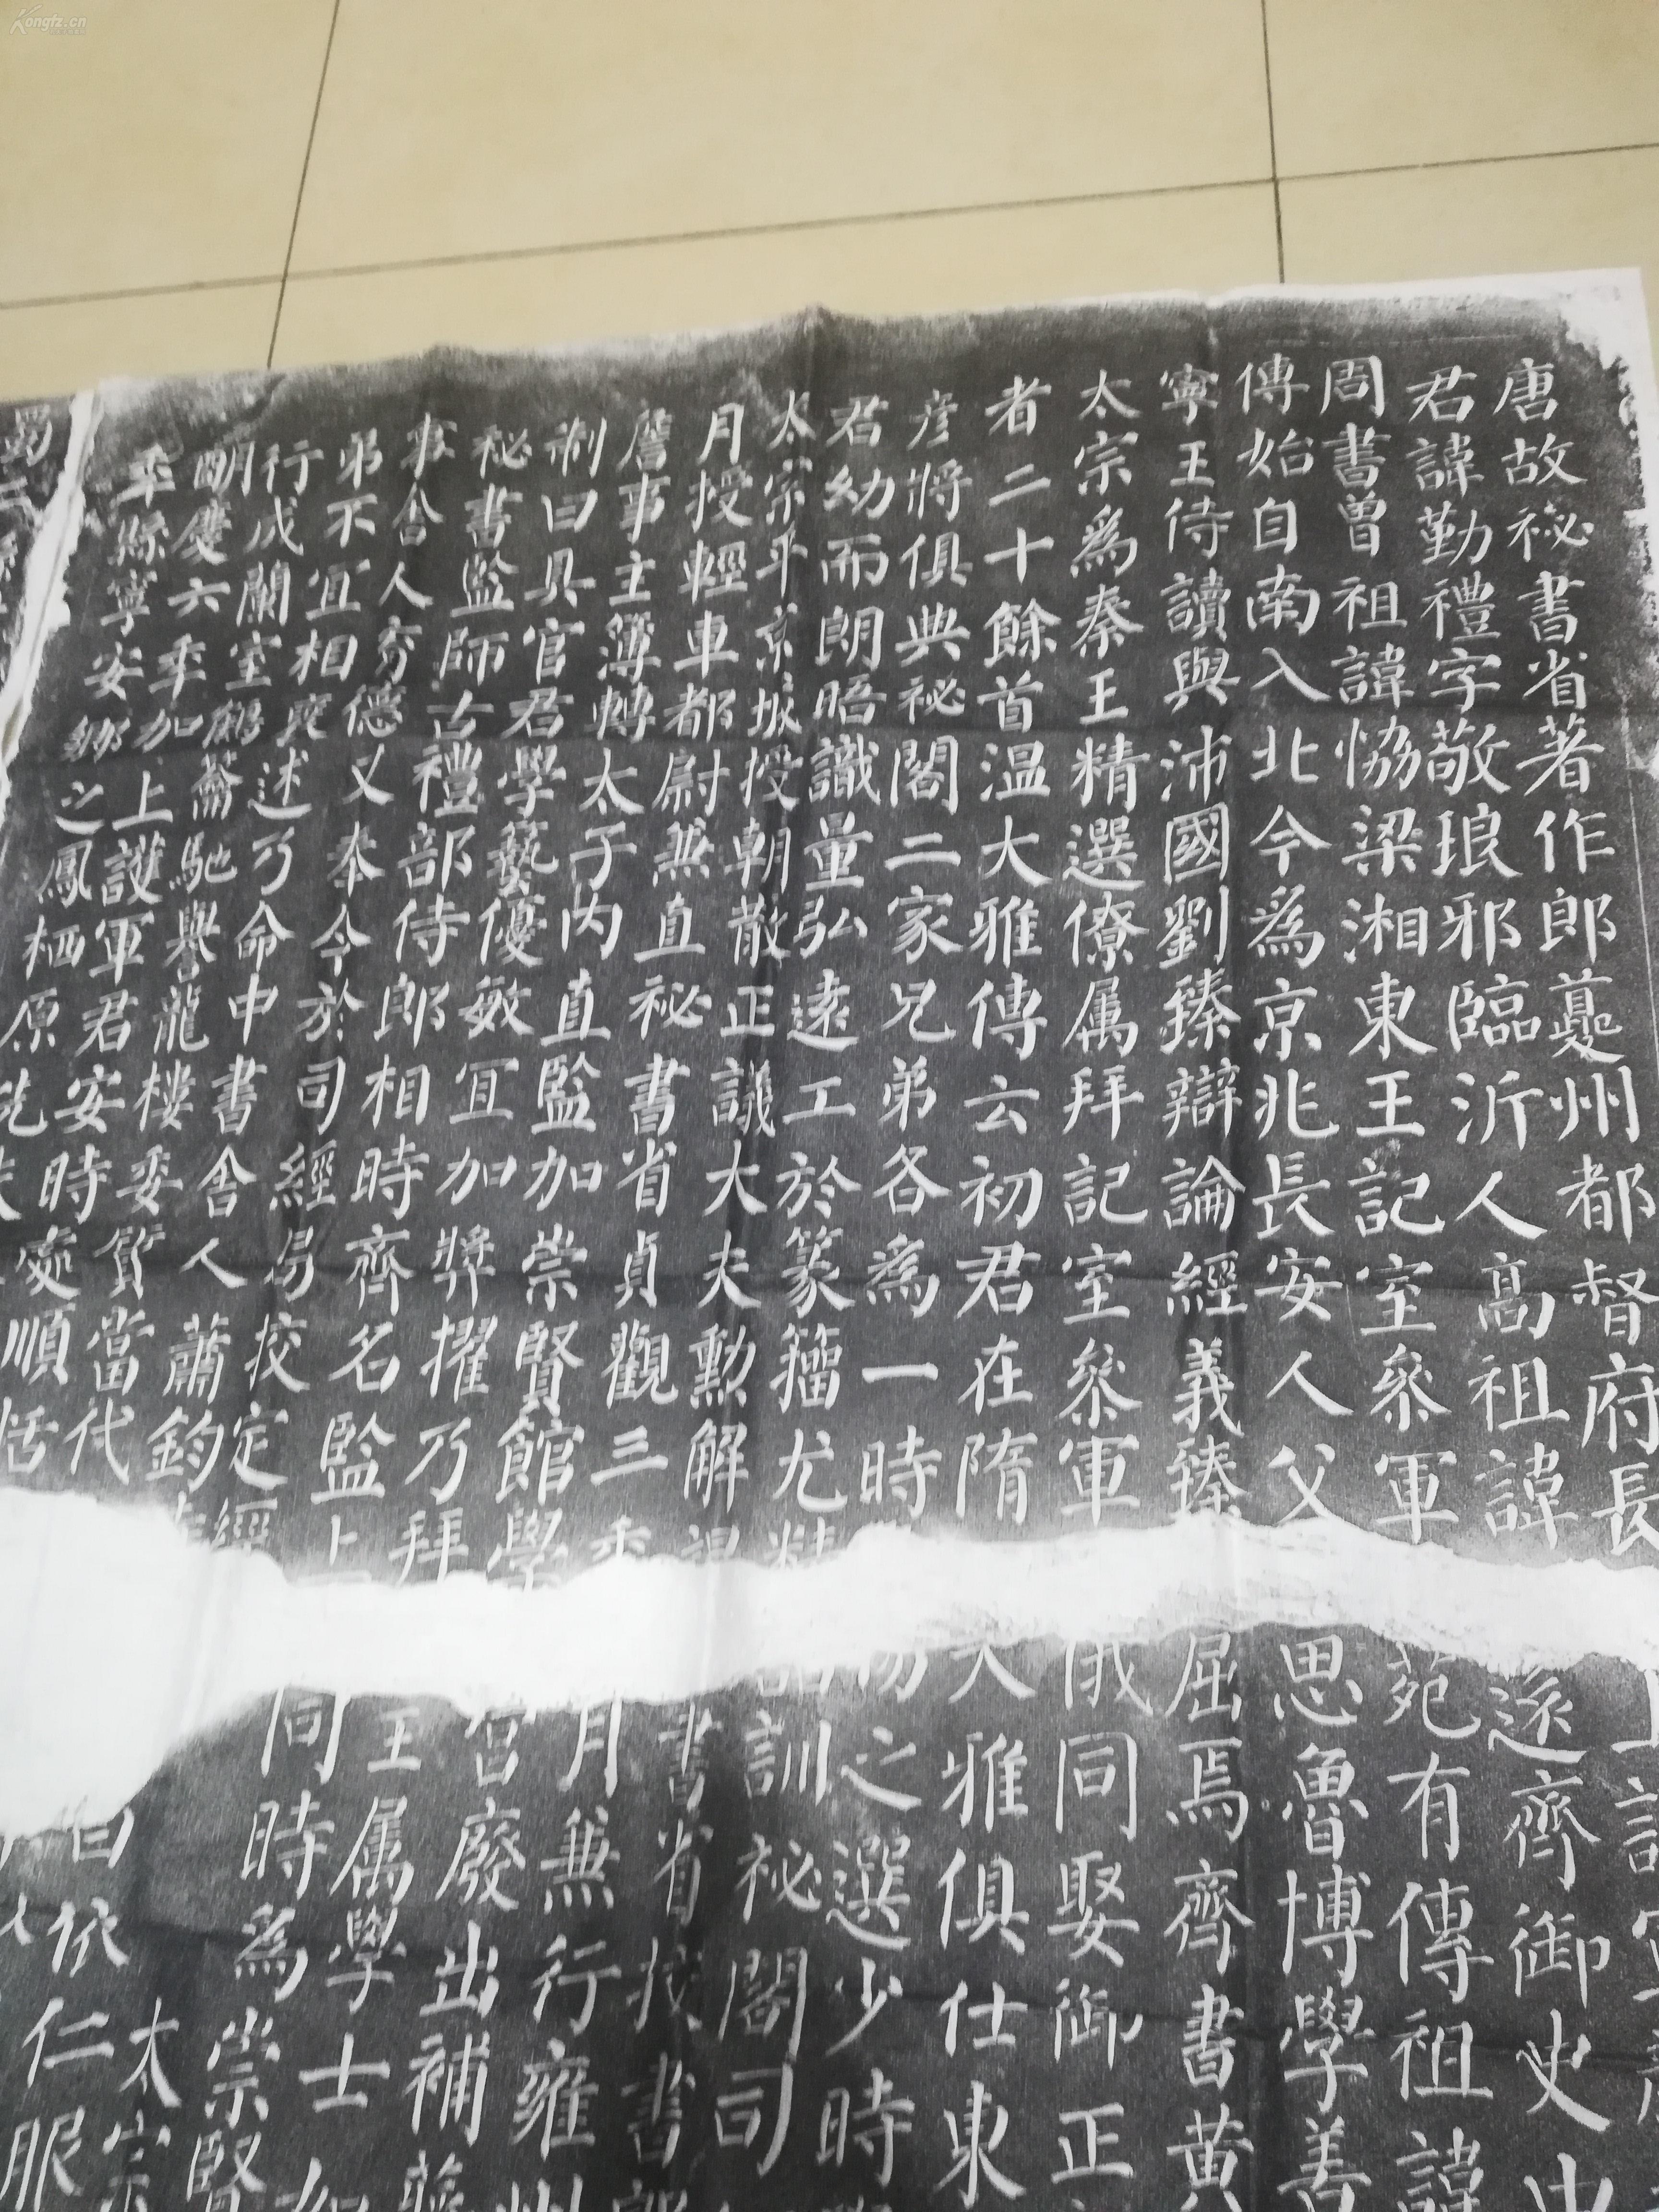 Kongfz.cn
唐故祕書省著作郎夔州都督府長上
君諱勤禮字敬琅邪臨沂人高祖諱遠齊御史中
周書曾祖諱協梁湘東王記室參軍苑有傳祖諱
傳始自南入北今為京兆長安人父思魯博學善
寧王侍讀與沛國劉臻辯論經義臻屈焉齊書黃
太宗為秦王精選僚属拜記室參軍儀同娶御正
者二十餘首溫大雅傳云初君在隋大雅俱仕東
彥將俱典祕閣二家兄弟各為一時物之選少時
君幼而朗晤識量弘遠工於篆籀尤精詁訓祕閣司
太宗平京城授朝散正議大夫勳解褐書省校書郎
月授輕車都尉兼直祕書省貞觀三年月兼行雍州
詹事主簿轉太子內直監加崇賢館學宮廢出補蔣
制曰具官君學藝優敏宜加獎擢乃拜王属學士如
祕書監師古禮部侍郎相時齊名監同時為崇賢
事舍人奇德又奉令於司經局校定經太宗
弟不宜相褒述乃命中書舍人蕭鈞曰依仁服
行成蘭室鶴籥馳譽龍樓委質當代
明慶六年加上護軍君安時處順恬
年縣寧安鄉之鳳栖原先夫